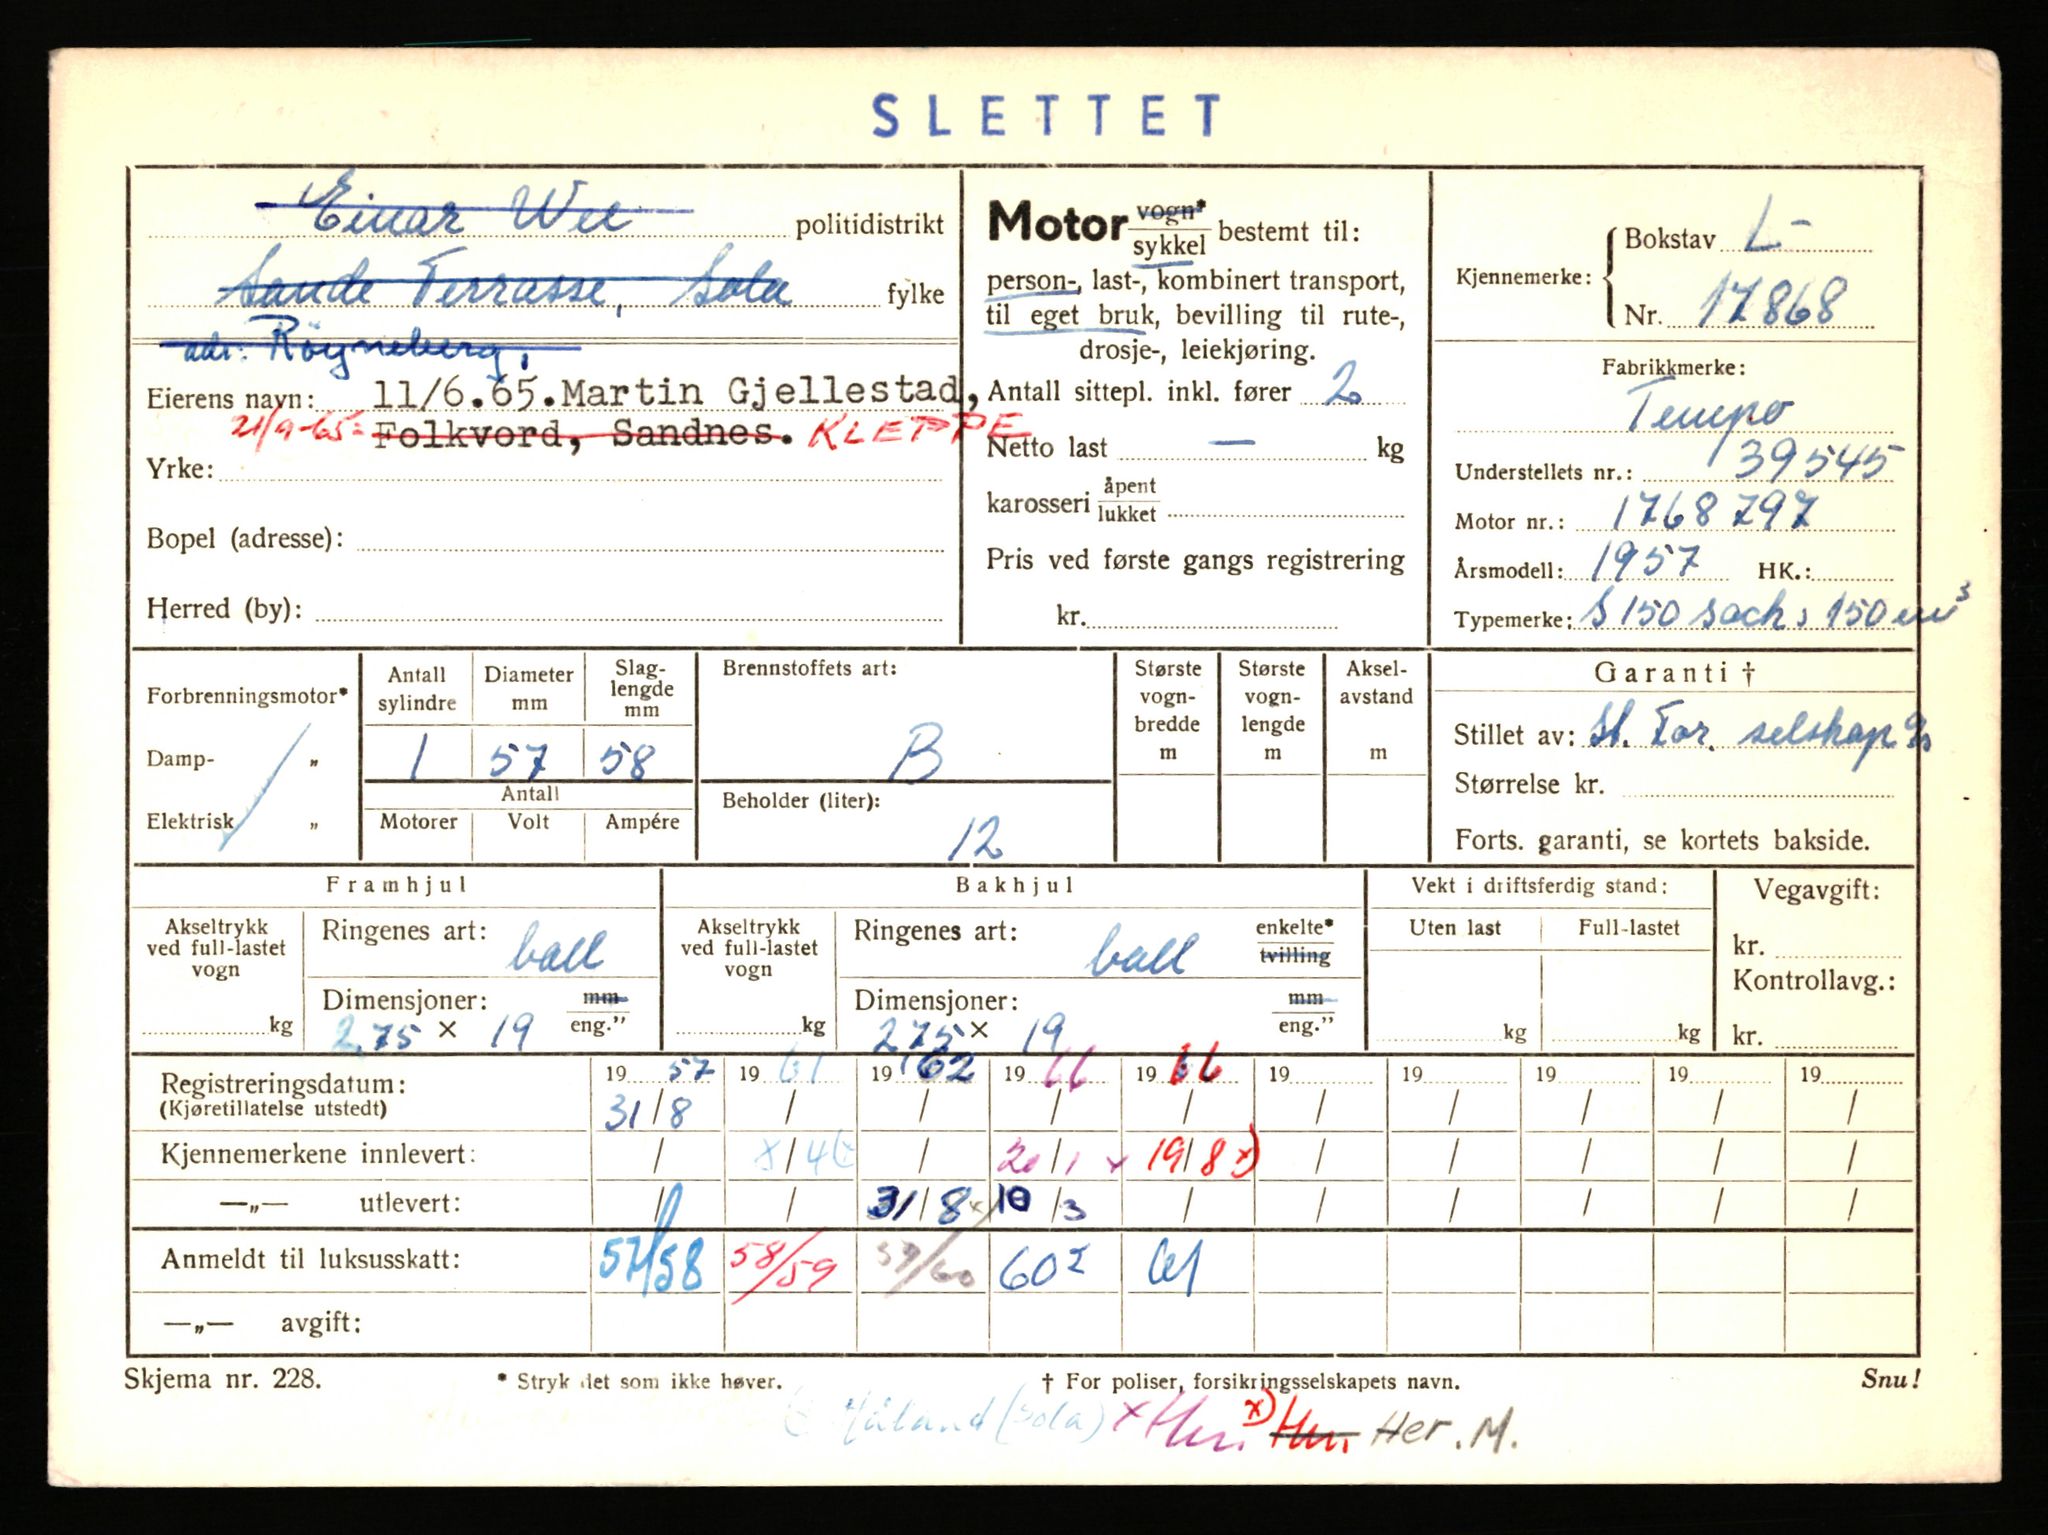 SLETTET
Einar Wee politidistrikt
Sande Terrasse, Sola fylke
adr: Röyneberg,
Eierens navn: 11/6.65. Martin Gjellestad,
21/9-65= Folkvord, Sandnes. KLEPPE
Yrke:
Bopel (adresse):
Herred (by):
Motor vogn* sykkel bestemt til:
person-, last-, kombinert transport,
til eget bruk, bevilling til rute-,
drosje-, leiekjøring.
Antall sittepl. inkl. fører 2
Netto last — kg
karosseri åpent lukket
Pris ved første gangs registrering
kr.
Kjennemerke: Bokstav L-
Nr. 17868
Fabrikkmerke:
Tempo
Understellets nr.: 39545
Motor nr.: 1768797
Årsmodell: 1957 HK.:
Typemerke: S 150 sach, 150 cm³
Forbrenningsmotor*
Damp- „
Elektrisk „
Antall sylindre
Diameter mm
Slaglengde mm
1 57 58
Antall
Motorer Volt Ampére
Brennstoffets art:
B
Beholder (liter):
12
Største vogn-bredde m
Største vogn-lengde m
Aksel-avstand m
Garanti †
Stillet av: St. For. selskap
Størrelse kr.
Forts. garanti, se kortets bakside.
Framhjul
Akseltrykk ved full-lastet vogn
kg
Ringenes art: ball
Dimensjoner: mm eng."
2,75 x 19
Bakhjul
Akseltrykk ved full-lastet vogn
kg
Ringenes art: ball enkelte* tvilling
Dimensjoner: mm eng."
2,75 x 19
Vekt i driftsferdig stand:
Uten last Full-lastet
kg kg
Vegavgift:
kr.
Kontrollavg.:
kr.
Registreringsdatum: 19 57 19 61 19 62 19 66 19 66 19 19 19 19 19
(Kjøretillatelse utstedt) 31/8 / / / / / / / / /
Kjennemerkene innlevert: / 8/4 / 20/1 x 19/8 x) / / / / /
—„— utlevert: / / 31/8 x) 10/3 / / / / / /
Anmeldt til luksusskatt: 57/58 58/59 59/60 60² 61
—„— avgift:
Skjema nr. 228. * Stryk det som ikke høver. † For poliser, forsikringsselskapets navn. Snu!
Håland (Sola) x Her. x) Her. Her. M.